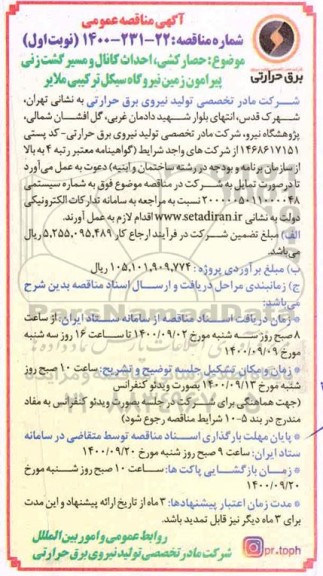 آگهی مناقصه عمومی
شماره مناقصه: ۲۲-۲۳۱-۱۴۰۰ (نوبت اول)
موضوع: حصارکشی، احداث کانال و مسیر گشت زنی
پیرامون زمین نیروگاه سیکل ترکیبی ملایر
برق حرارتی
شرکت مادر تخصصی تولید نیروی برق حرارتی به نشانی تهران،
شهرک قدس، انتهای بلوار شهید دادمان غربی، گل افشان شمالی،
پژوهشگاه نیرو، شرکت مادر تخصصی تولید نیروی برق حرارتی- کد پستی
۱۴۶۸۶۱۷۱۵۱ از شرکت های واجد شرایط (گواهینامه معتبر رتبه ۴ به بالا
از سازمان برنامه و بودجه در رشته ساختمان و ابنیه) دعوت به عمل می‌آورد
تا در صورت تمایل به شرکت در مناقصه موضوع فوق به شماره سیستمی
۲۰۰۰۰۰۵۰۱۱۰۰۰۰۴۸ نسبت به مراجعه به سامانه تدارکات الکترونیکی
دولت به نشانی www.setadiran.ir اقدام لازم به عمل آورند.
الف) مبلغ تضمین شرکت در فرآیند ارجاع کار ۵,۲۵۵,۰۹۵,۴۸۹ ریال
می‌باشد.
ب) مبلغ برآوردی پروژه: ۱۰۵,۱۰۱,۹۰۹,۷۷۴ ریال
ج) زمانبندی مراحل دریافت و ارسال اسناد مناقصه بدین شرح
می‌باشد:
* زمان دریافت اسناد مناقصه از سامانه ستاد ایران: از ساعت
۸ صبح روز سه شنبه مورخ ۱۴۰۰/۰۹/۰۲ تا ساعت ۱۶ روز سه شنبه
مورخ ۱۴۰۰/۰۹/۰۹
* زمان و مکان تشکیل جلسه توضیح و تشریح: ساعت ۱۰ صبح روز
شنبه مورخ ۱۴۰۰/۰۹/۱۳ بصورت ویدئو کنفرانس
(جهت هماهنگی برای شرکت در جلسه بصورت ویدئو کنفرانس به مفاد
مندرج در بند ۵-۱۰ شرایط مناقصه رجوع شود)
* پایان مهلت بارگذاری اسناد مناقصه توسط متقاضی در سامانه
ستاد ایران: ساعت ۹ صبح روز شنبه مورخ ۱۴۰۰/۰۹/۲۰
* زمان بازگشایی پاکت ها: ساعت ۱۰ صبح روز شنبه مورخ
۱۴۰۰/۰۹/۲۰
* مدت زمان اعتبار پیشنهادها: ۳ ماه از تاریخ ارائه پیشنهاد و این مدت
برای ۳ ماه دیگر نیز قابل تمدید باشد.
روابط عمومی و امور بین الملل
شرکت مادر تخصصی تولید نیروی برق حرارتی
pr.tpph